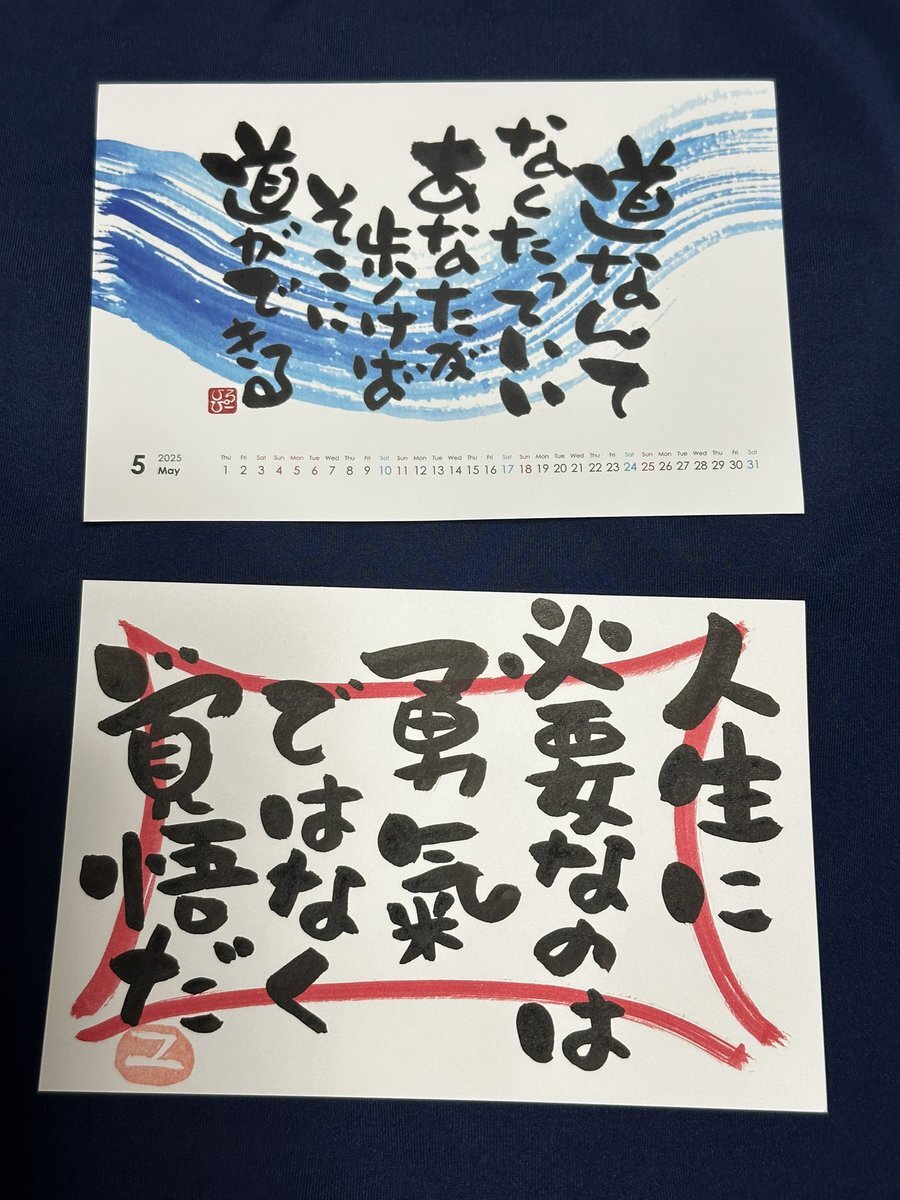 道なんて
なくたっていい
あなたが
歩けば
そこに
道ができる
ぴろぴー
5
2025
May
Thu Fri Sat Sun Mon Tue Wed Thu Fri Sat Sun Mon Tue Wed Thu Fri Sat Sun Mon Tue Wed Thu Fri Sat Sun Mon Tue Wed Thu Fri Sat
1 2 3 4 5 6 7 8 9 10 11 12 13 14 15 16 17 18 19 20 21 22 23 24 25 26 27 28 29 30 31
人生に
必要なのは
勇氣
ではなく
覚悟だ